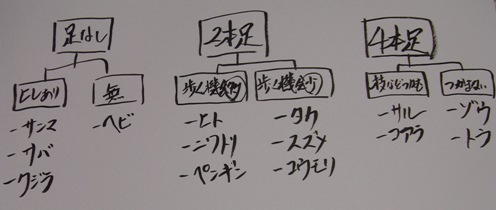 足なし
ヒレあり
無
ーサンマ
ーサバ
ークジラ
ーヘビ
2本足
歩く機会多
歩く機会少
ーヒト
ーニワトリ
ーペンギン
ータカ
ースズメ
ーコウモリ
4本足
つかまない
ーサル
ーコアラ
ーゾウ
ートラ